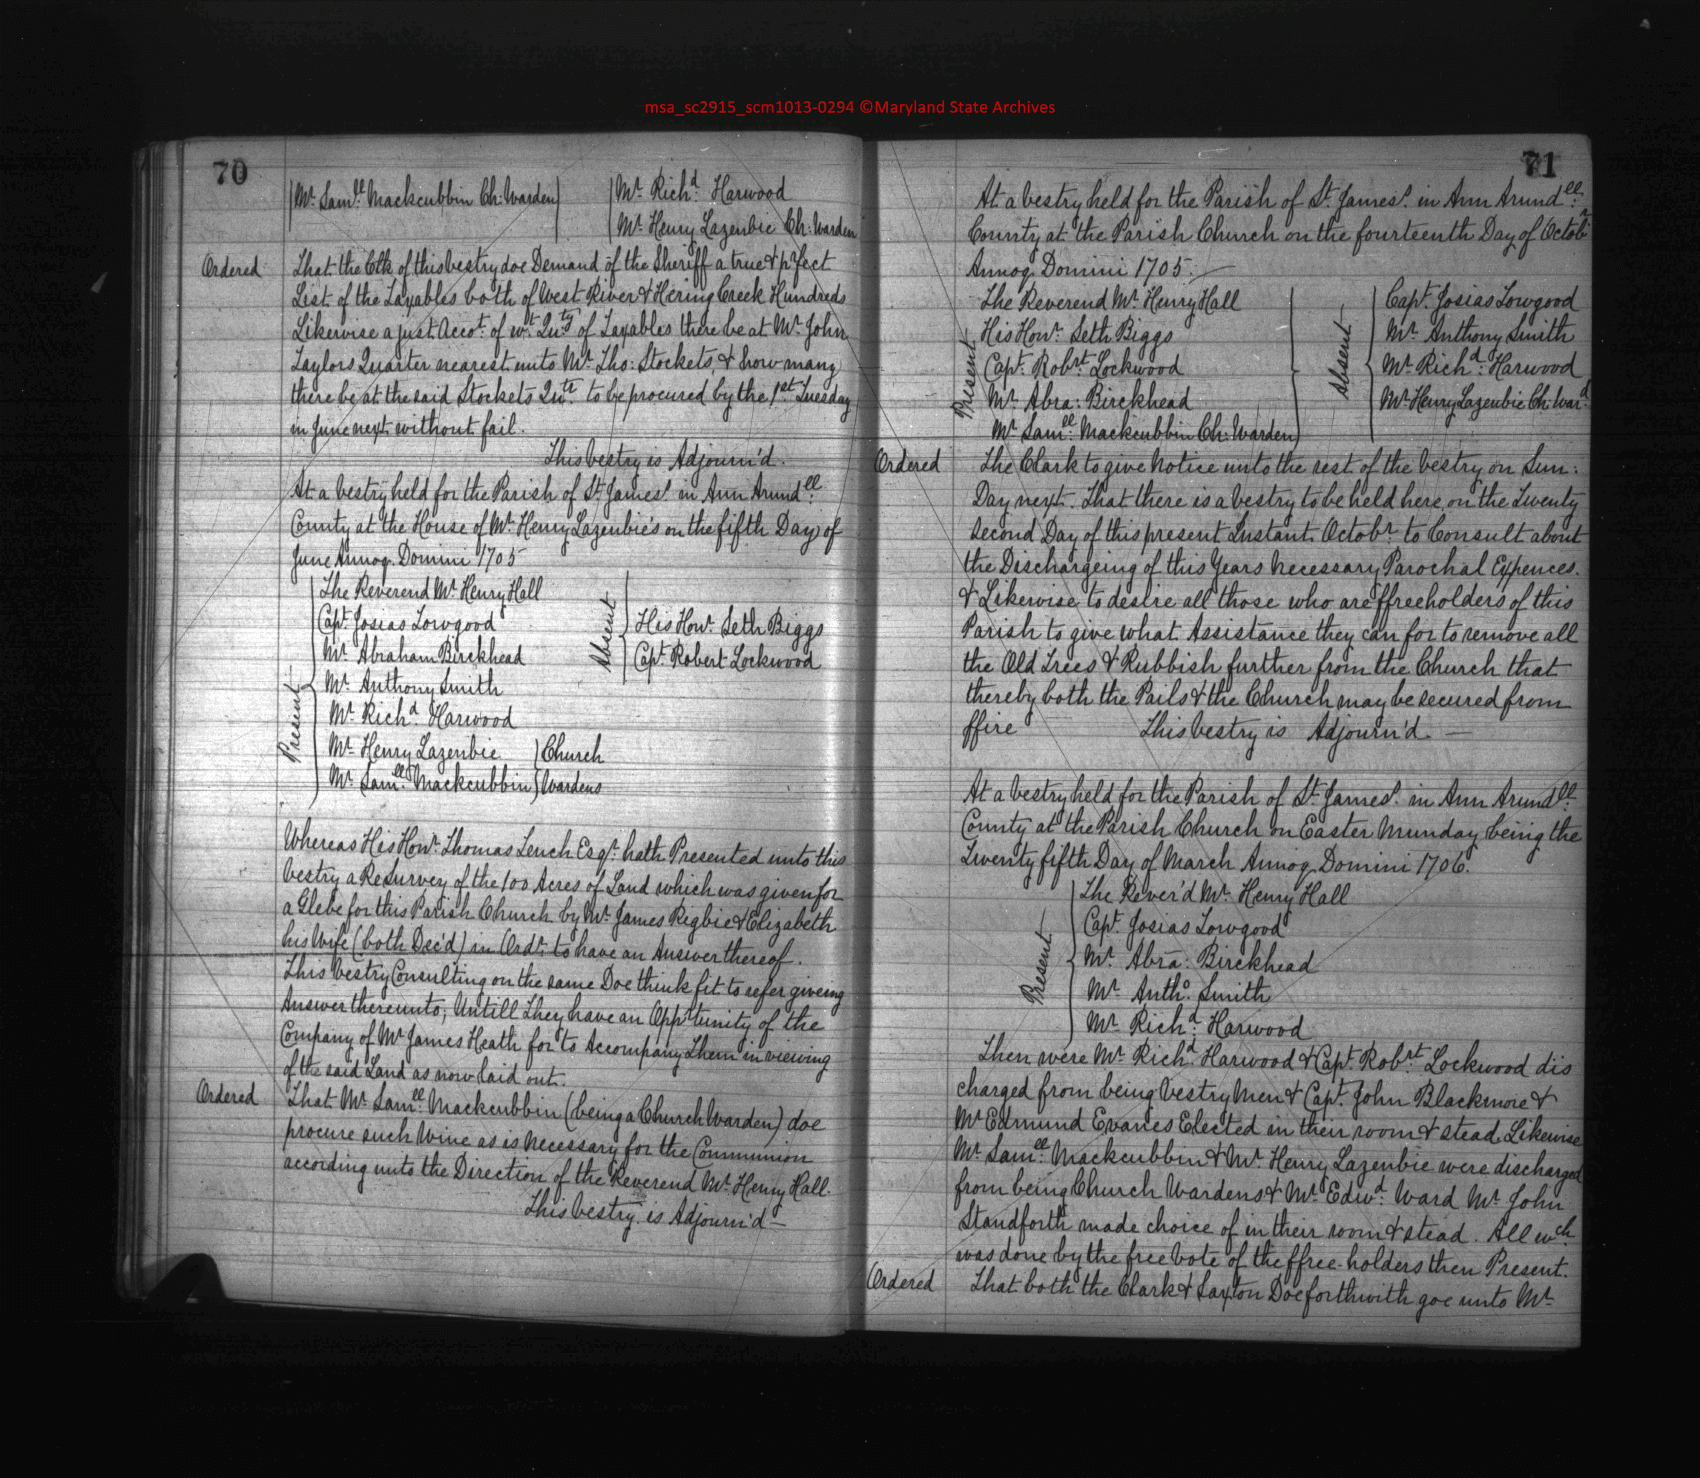 msa_sc2915_scm1013-0294 ©Maryland State Archives
70
Mr Samll Mackcubbin Ch: Warden
Mr Richd Harwood
Mr Henry Lazenbie Ch: Warden
Ordered That the Clk of this vestry doe Demand of the Sheriff a true & prfect
List of the Taxables both of West River & Hering Creek Hundreds
Likewise a just Accot. of wt. Quty of Taxables there be at Mr. John
Taylors Quarter nearest unto Mr. Tho: Stockets, & how many
there be at the said Stockets Qutr. to be procured by the 1st Tuesday
in June next without fail.
This vestry is Adjourn'd.
At a vestry held for the Parish of St. James's in Ann Arundell
County at the House of Mr Henry Lazenbie's on the fifth Day of
June Annoq. Domini 1705
Present
The Reverend Mr Henry Hall
Capt. Josias Towgood
Mr Abraham Birckhead
Mr Anthony Smith
Mr Richd. Harwood
Mr Henry Lazenbie
Mr Samll. Mackcubbin
Church
Wardens
Absent
His Honr. Seth Biggs
Capt. Robert Lockwood
Whereas His Honr. Thomas Tench Esqr. hath Presented unto this
vestry a ReSurvey of the 100 Acres of Land which was given for
a Glebe for this Parish Church by Mr. James Rigbie & Elizabeth
his Wife (both Dec'd) in Ordr. to have an Answer thereof.
This vestry Consulting on the same Doe think fit to refer giveing
Answer thereunto; Untill They have an Opprtunity of the
Company of Mr James Heath for to Accompany Them in viewing
of the said Land as now laid out.
Ordered That Mr Samll. Mackcubbin (being a Church Warden) doe
procure such Wine as is necessary for the Communion
according unto the Direction of the Reverend Mr. Henry Hall.
This vestry is Adjourn'd —
71
At a vestry held for the Parish of St. James's. in Ann Arundell.
County at the Parish Church on the fourteenth Day of Octobr
Annoq. Domini 1705. —
Present
The Reverend Mr. Henry Hall
His Honr. Seth Biggs
Capt. Robrt. Lockwood
Mr. Abra: Birckhead
Mr Samll. Mackcubbin Ch: Warden
Absent
Capt. Josias Towgood
Mr. Anthony Smith
Mr. Richd. Harwood
Mr Henry Lazenbie Ch: Ward.
Ordered The Clark to give notice unto the rest of the vestry on Sun:
Day next. That there is a vestry to be held here, on the Twenty
second Day of this present Instant. Octobr. to Consult about
the Dischargeing of this Years necessary Parochal Expences.
& Likewise to desire all those who are ffreeholders of this
Parish to give what Assistance they can for to remove all
the Old Trees & Rubbish further from the Church that
thereby both the Pails & the Church may be secured from
ffire This vestry is Adjourn'd. —
At a vestry held for the Parish of St. James's. in Ann Arundll.
County at the Parish Church on Easter Munday being the
Twenty fifth Day of March Annoq. Domini 1706.
Present
The Rever'd Mr. Henry Hall
Capt. Josias Towgood
Mr. Abra: Birckhead
Mr Antho. Smith
Mr. Richd. Harwood
Then were Mr Richd. Harwood & Capt. Robrt. Lockwood dis
charged from being Vestry Men & Capt. John Blackmore &
Mr Edmund Evanes Elected in their room & stead, Likewise
Mr. Samll. Mackcubbin & Mr. Henry Lazenbie were discharged
from being Church Wardens & Mr. Edwd. Ward Mr. John
Standforth made choice of in their room & stead. All wch.
was done by the free vote of the ffree-holders then Present.
Ordered That both the Clark & Saxton Doe forthwith goe unto Mr.